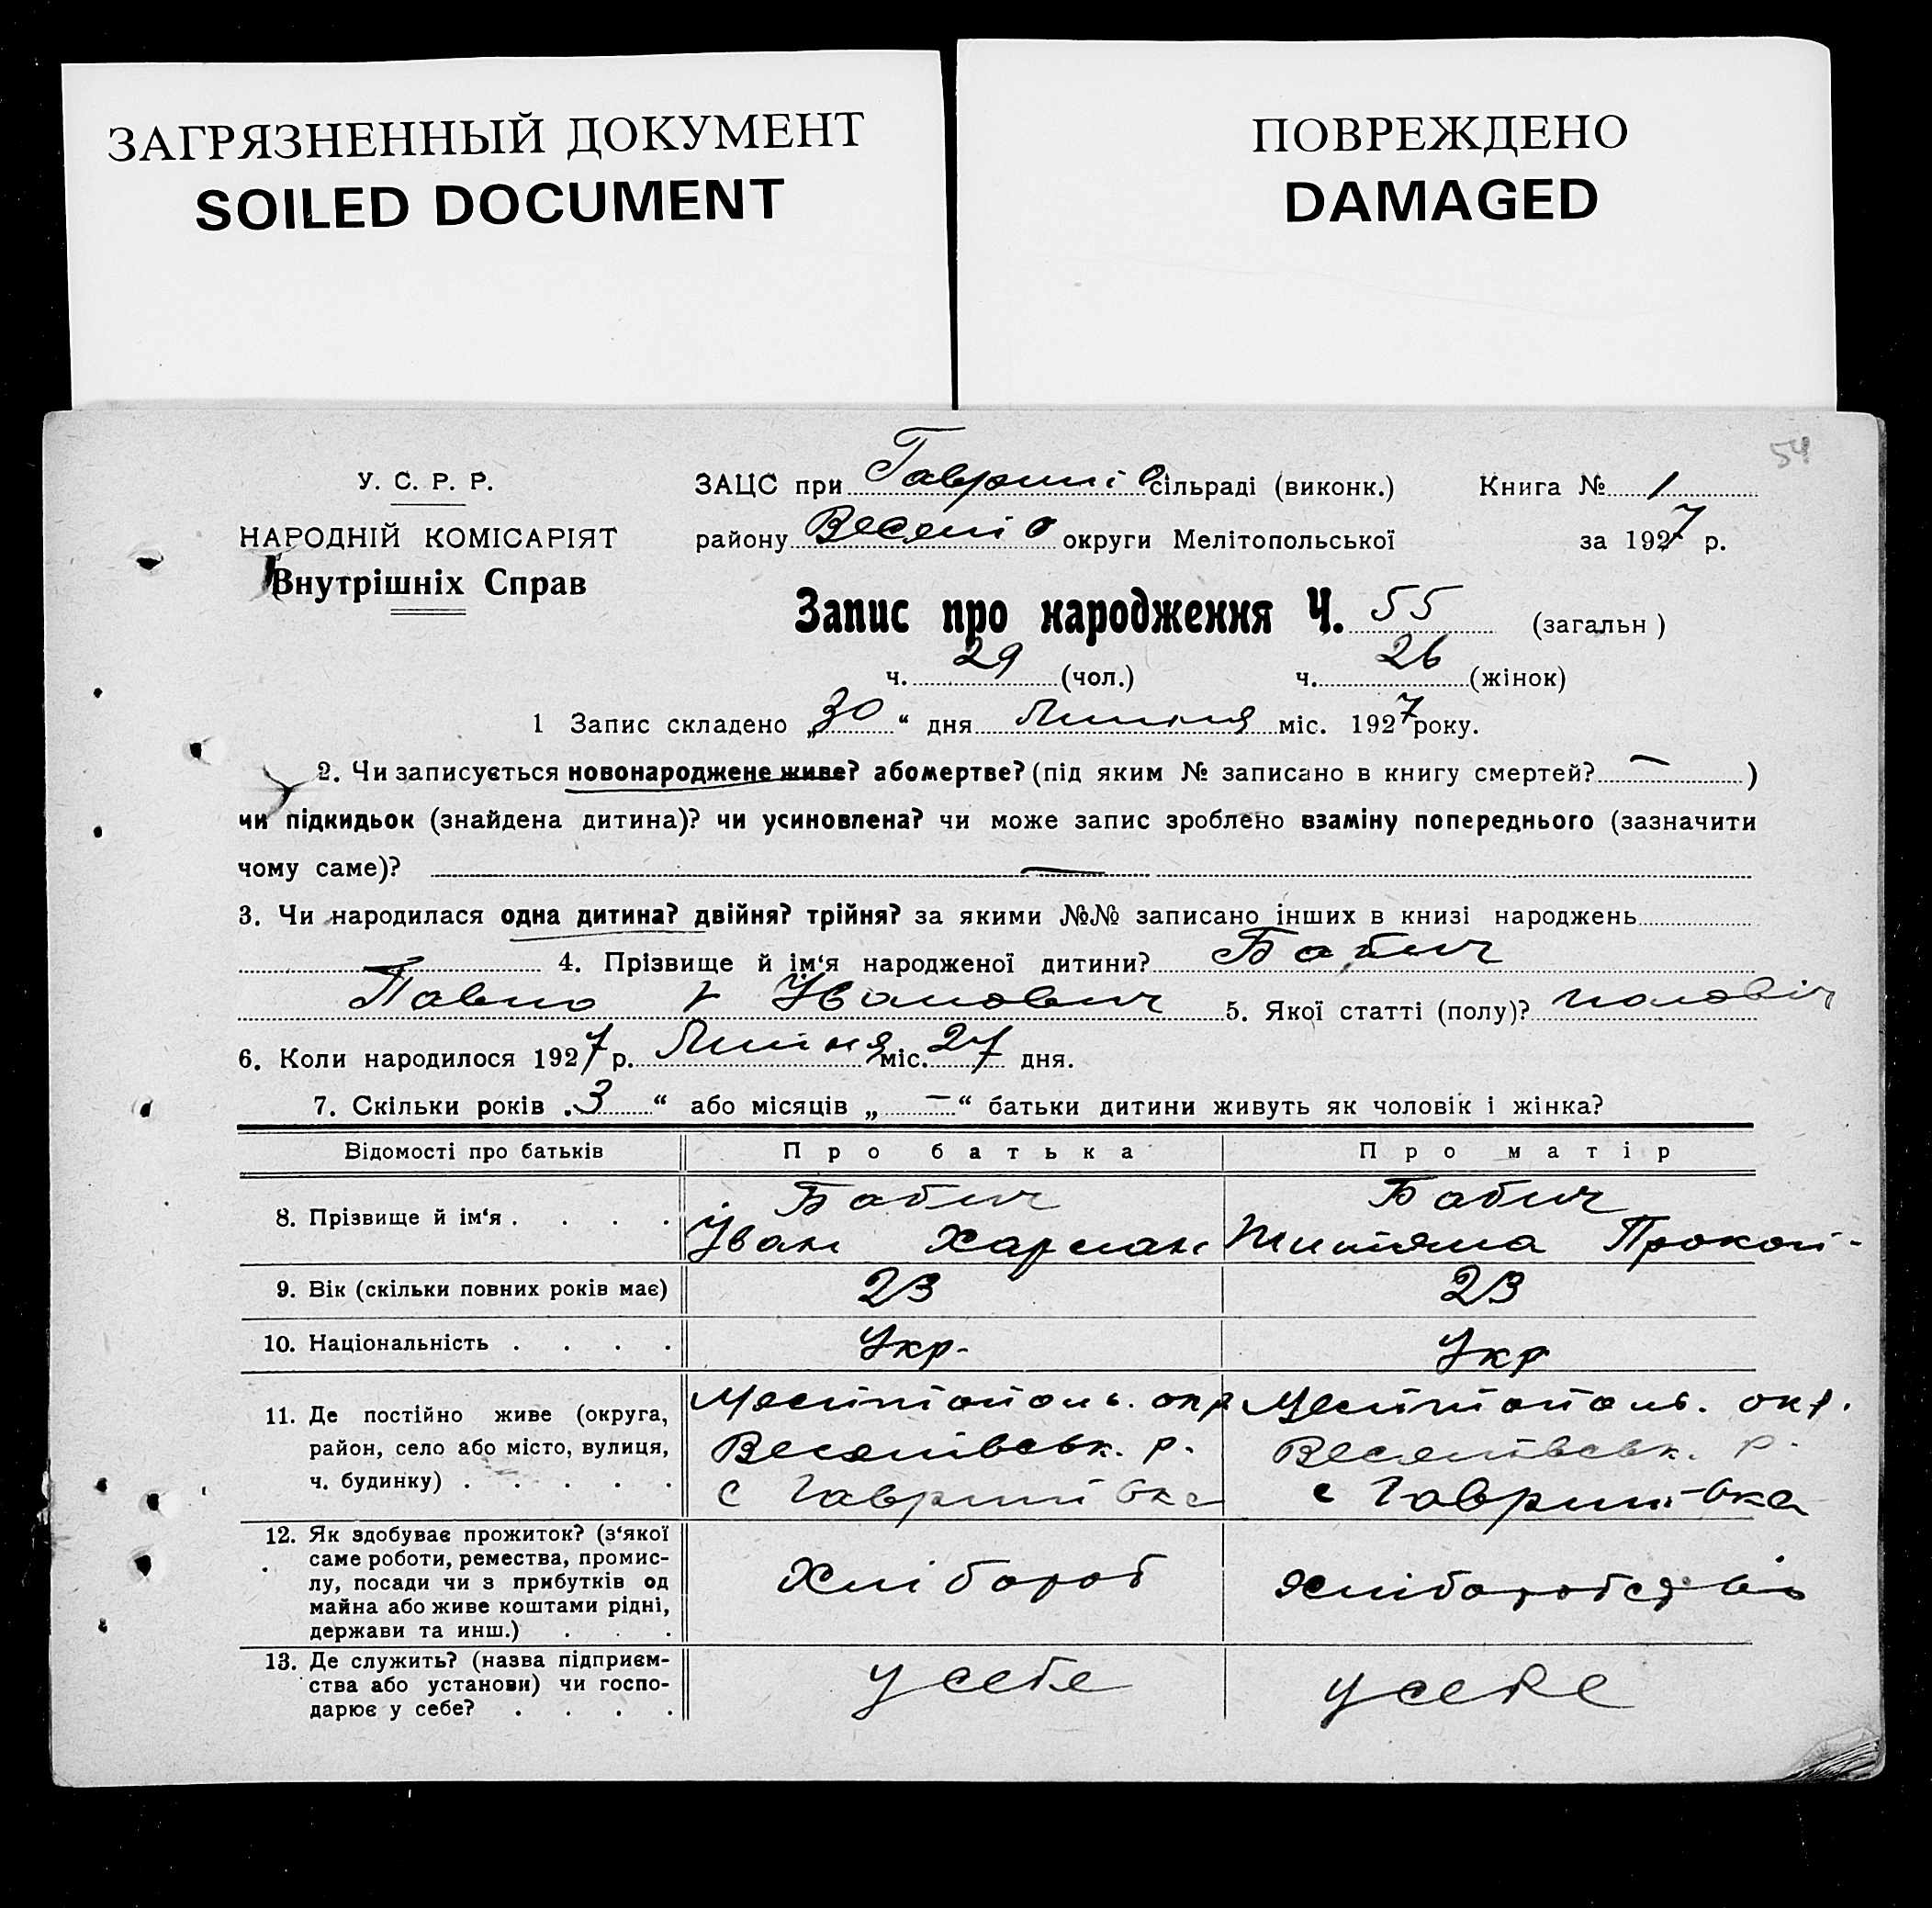 ЗАГРЯЗНЕННЫЙ ДОКУМЕНТ
SOILED DOCUMENT
ПОВРЕЖДЕНО
DAMAGED
54
У. С. Р. Р.
НАРОДНІЙ КОМІСАРІЯТ
Внутрішніх Справ
ЗАЦС при Гаврилів сільраді (виконк.) Книга № 1
району Веселів округи Мелітопольської за 1927 р.
Запис про народження Ч. 55 (загальн)
ч. 29 (чол.) ч. 26 (жінок)
1 Запис складено „30“ дня Липня міс. 1927 року.
2. Чи записується новонароджене живе? або мертве? (під яким № записано в книгу смертей? — )
чи підкидьок (знайдена дитина)? чи усиновлена? чи може запис зроблено взаміну попереднього (зазначити
чому саме)? —
3. Чи народилася одна дитина? двійня? трійня? за якими №№ записано інших в книзі народжень
4. Прізвище й ім‘я народженої дитини? Бабич
Павло Иванович 5. Якої статті (полу)? чоловіч
6. Коли народилося 1927 р. Липня міс. 27 дня.
7. Скільки років „3“ або місяців „—“ батьки дитини живуть як чоловік і жінка?
Відомості про батьків Про батька Про матір
8. Прізвище й ім‘я . . . . Бабич Бабич
Іван Харлам Титяна Прокоп-
9. Вік (скільки повних років має) 23 23
10. Національність . . . . Укр. Укр
11. Де постійно живе (округа, Мелітополь. окр Мелітополь. окр.
район, село або місто, вулиця, Веселівськ. р. Веселівськ. р.
ч. будинку) . . . . . с Гаврилівка с Гаврилівка
12. Як здобуває прожиток? (з‘якої
саме роботи, ремества, промис-
лу, посади чи з прибутків од Хлібороб хліборобство
майна або живе коштами рідні,
держави та инш.) . . .
13. Де служить? (назва підприєм-
ства або установи) чи госпо- у себе у себе
дарює у себе? . . . .